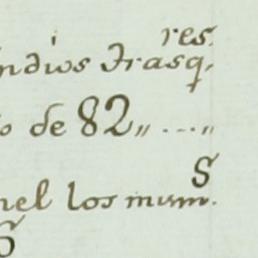 res.
ndios Trasq.
o de 82,, ....,,
nel los mum.s